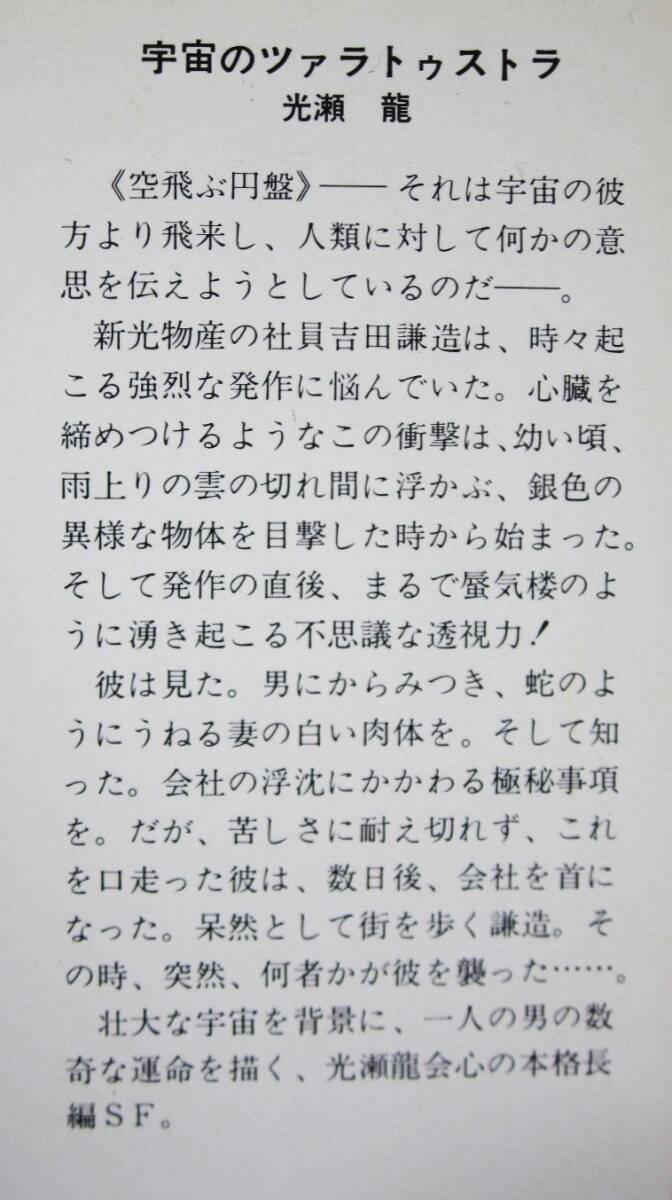 宇宙のツァラトゥストラ
光瀬 龍
《空飛ぶ円盤》── それは宇宙の彼
方より飛来し、人類に対して何かの意
思を伝えようとしているのだ──。
新光物産の社員吉田謙造は、時々起
こる強烈な発作に悩んでいた。心臓を
締めつけるようなこの衝撃は、幼い頃、
雨上りの雲の切れ間に浮かぶ、銀色の
異様な物体を目撃した時から始まった。
そして発作の直後、まるで蜃気楼のよ
うに湧き起こる不思議な透視力！
彼は見た。男にからみつき、蛇のよ
うにうねる妻の白い肉体を。そして知
った。会社の浮沈にかかわる極秘事項
を。だが、苦しさに耐え切れず、これ
を口走った彼は、数日後、会社を首に
なった。呆然として街を歩く謙造。そ
の時、突然、何者かが彼を襲った……。
壮大な宇宙を背景に、一人の男の数
奇な運命を描く、光瀬龍会心の本格長
編ＳＦ。